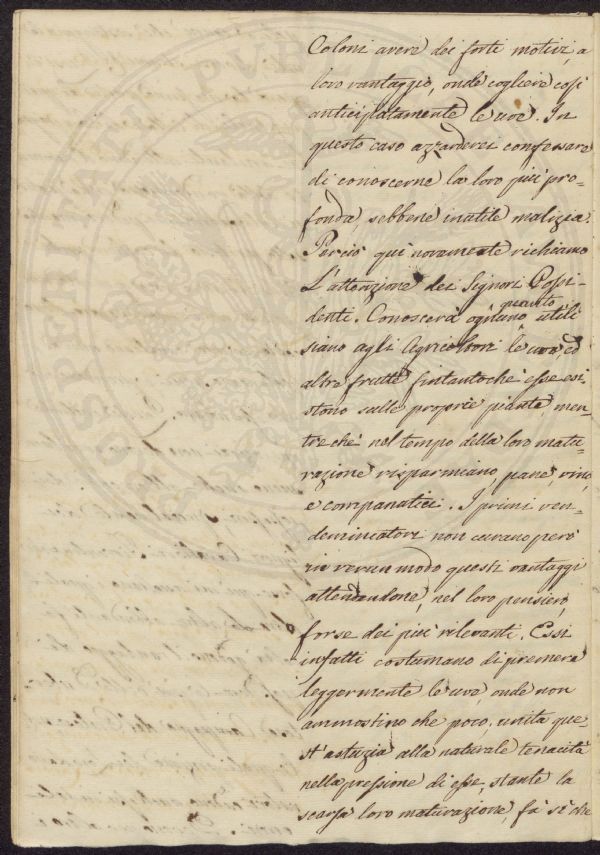 Coloni avere dei forti motivi, a
loro vantaggio, onde cogliere così
anticipatamente le uve. In
questo caso azzarderei confessare
di conoscerne la loro più pro-
fonda, sebbene inutile malizia.
Perciò qui novamente richiamo
L'attenzione dei Signori Possi-
denti. Conoscerà ognuno quanto utili
siano agli Agricoltori le uve ed
altre frutte fintantoché esse esi
stono sulle proprie piante, men-
treché nel tempo della loro matu-
razione risparmiano, pane, vino,
e companatici. I primi ven-
demmiatori non curano però
in verun modo questi vantaggi
attendendone, nel loro pensiero,
forse dei più rilevanti. Essi
infatti costumano di premere
leggermente le uve, onde non
ammostino che poco; unita que
st'astuzia alla naturale tenacità
nella pressione di esse, stante la
scarsa loro maturazione, fà sì che